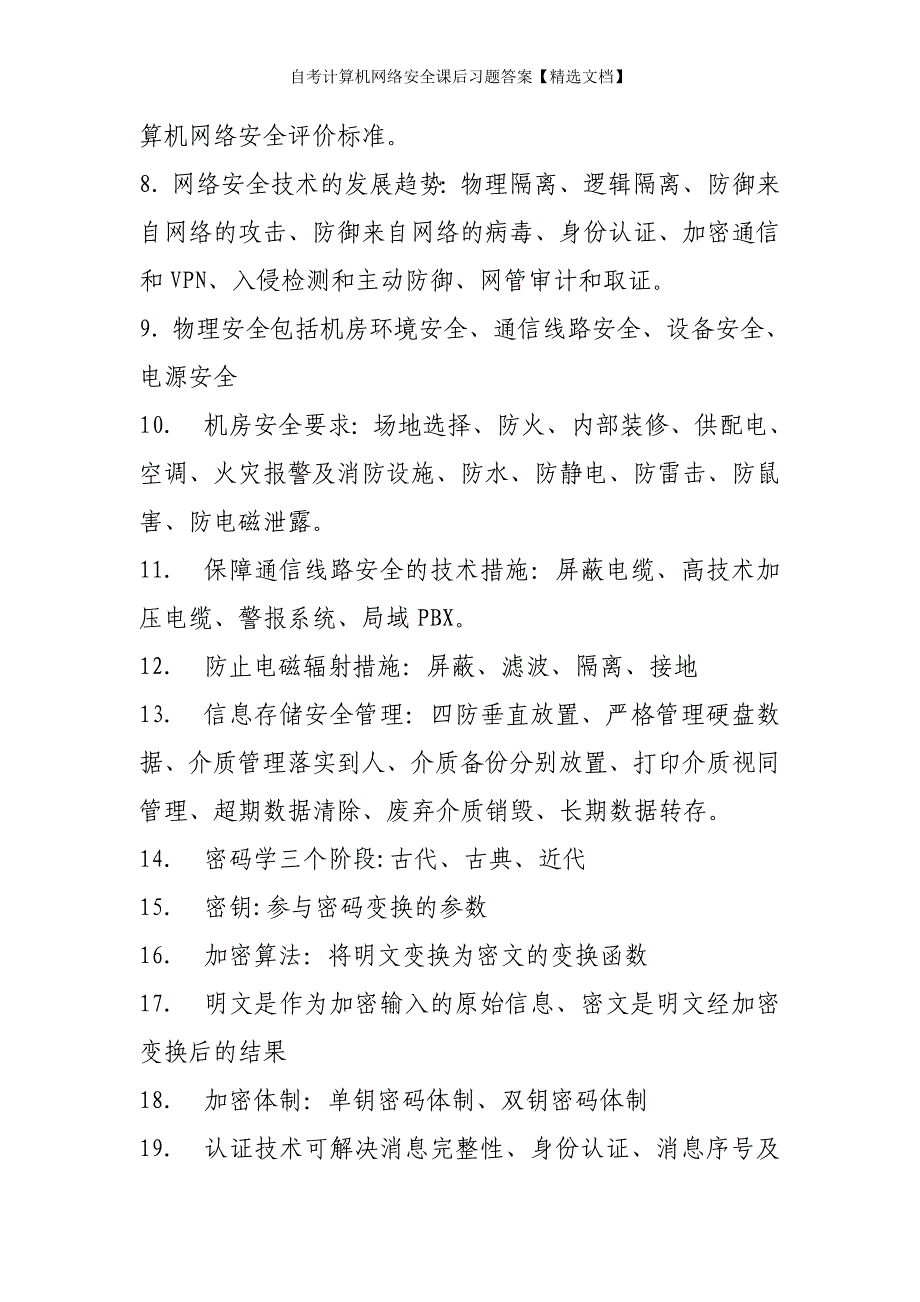 自考计算机网络安全课后习题答案【精选文档】
算机网络安全评价标准。
8. 网络安全技术的发展趋势：物理隔离、逻辑隔离、防御来
自网络的攻击、防御来自网络的病毒、身份认证、加密通信
和 VPN、入侵检测和主动防御、网管审计和取证。
9. 物理安全包括机房环境安全、通信线路安全、设备安全、
电源安全
10. 机房安全要求：场地选择、防火、内部装修、供配电、
空调、火灾报警及消防设施、防水、防静电、防雷击、防鼠
害、防电磁泄露。
11. 保障通信线路安全的技术措施：屏蔽电缆、高技术加
压电缆、警报系统、局域 PBX。
12. 防止电磁辐射措施：屏蔽、滤波、隔离、接地
13. 信息存储安全管理：四防垂直放置、严格管理硬盘数
据、介质管理落实到人、介质备份分别放置、打印介质视同
管理、超期数据清除、废弃介质销毁、长期数据转存。
14. 密码学三个阶段:古代、古典、近代
15. 密钥:参与密码变换的参数
16. 加密算法：将明文变换为密文的变换函数
17. 明文是作为加密输入的原始信息、密文是明文经加密
变换后的结果
18. 加密体制：单钥密码体制、双钥密码体制
19. 认证技术可解决消息完整性、身份认证、消息序号及